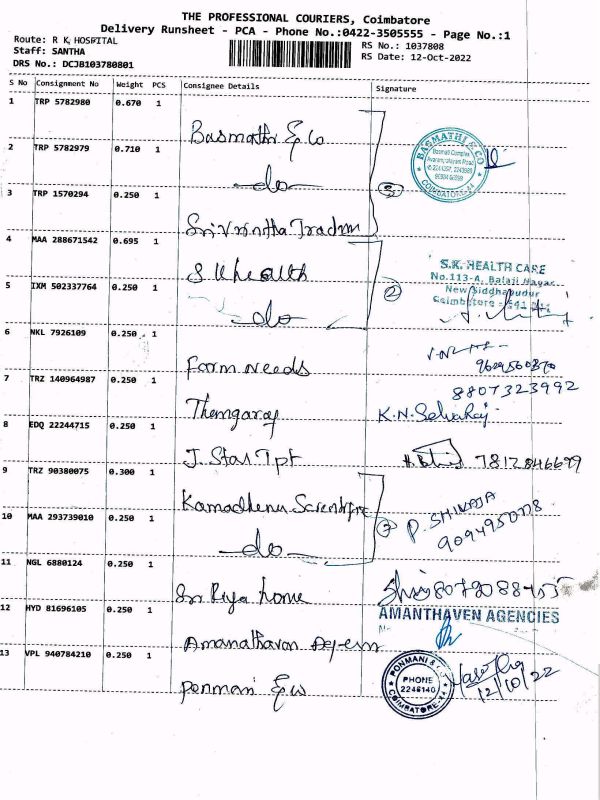 THE PROFESSIONAL COURIERS, Coimbatore
Delivery Runsheet - PCA - Phone No.:0422-3505555 - Page No.:1
Route: R K HOSPITAL
RS No.: 1037808
Staff: SANTHA
RS Date: 12-Oct-2022
DRS No.: DCJB103780801
S No Consignment No Weight PCS Consignee Details Signature
1 TRP 5782980 0.670 1 Basmathi & Co
2 TRP 5782979 0.710 1 -do-
BASMATHI & CO
COIMBATORE-44
3 TRP 1570294 0.250 1 Sri Vrintha Traders
3
4 MAA 288671542 0.695 1 S K health
S.K. HEALTH CARE
No.113-A, Balaji Nagar
New Siddhapudur
Coimbatore - 641 044
5 IXM 502337764 0.250 1 -do-
2
6 NKL 7926109 0.250 1 Farm needs
7 TRZ 140964987 0.250 1 Thengaraj
8807323992
K.N. Selvaraj
8 EDQ 22244715 0.250 1 J. Star Tpt
7812846699
9 TRZ 90380075 0.300 1 Kamadhenu Scientific
10 MAA 293739010 0.250 1 -do-
P. SHIVAJA
11 NGL 6880124 0.250 1 Sri Priya home
12 HYD 81696105 0.250 1 Amanathavan Agem
AMANTHAVEN AGENCIES
13 VPL 940784210 0.250 1 Ponmani & co
PONMANI & CO
PHONE
2246140
COIMBATORE-44
12/10/22